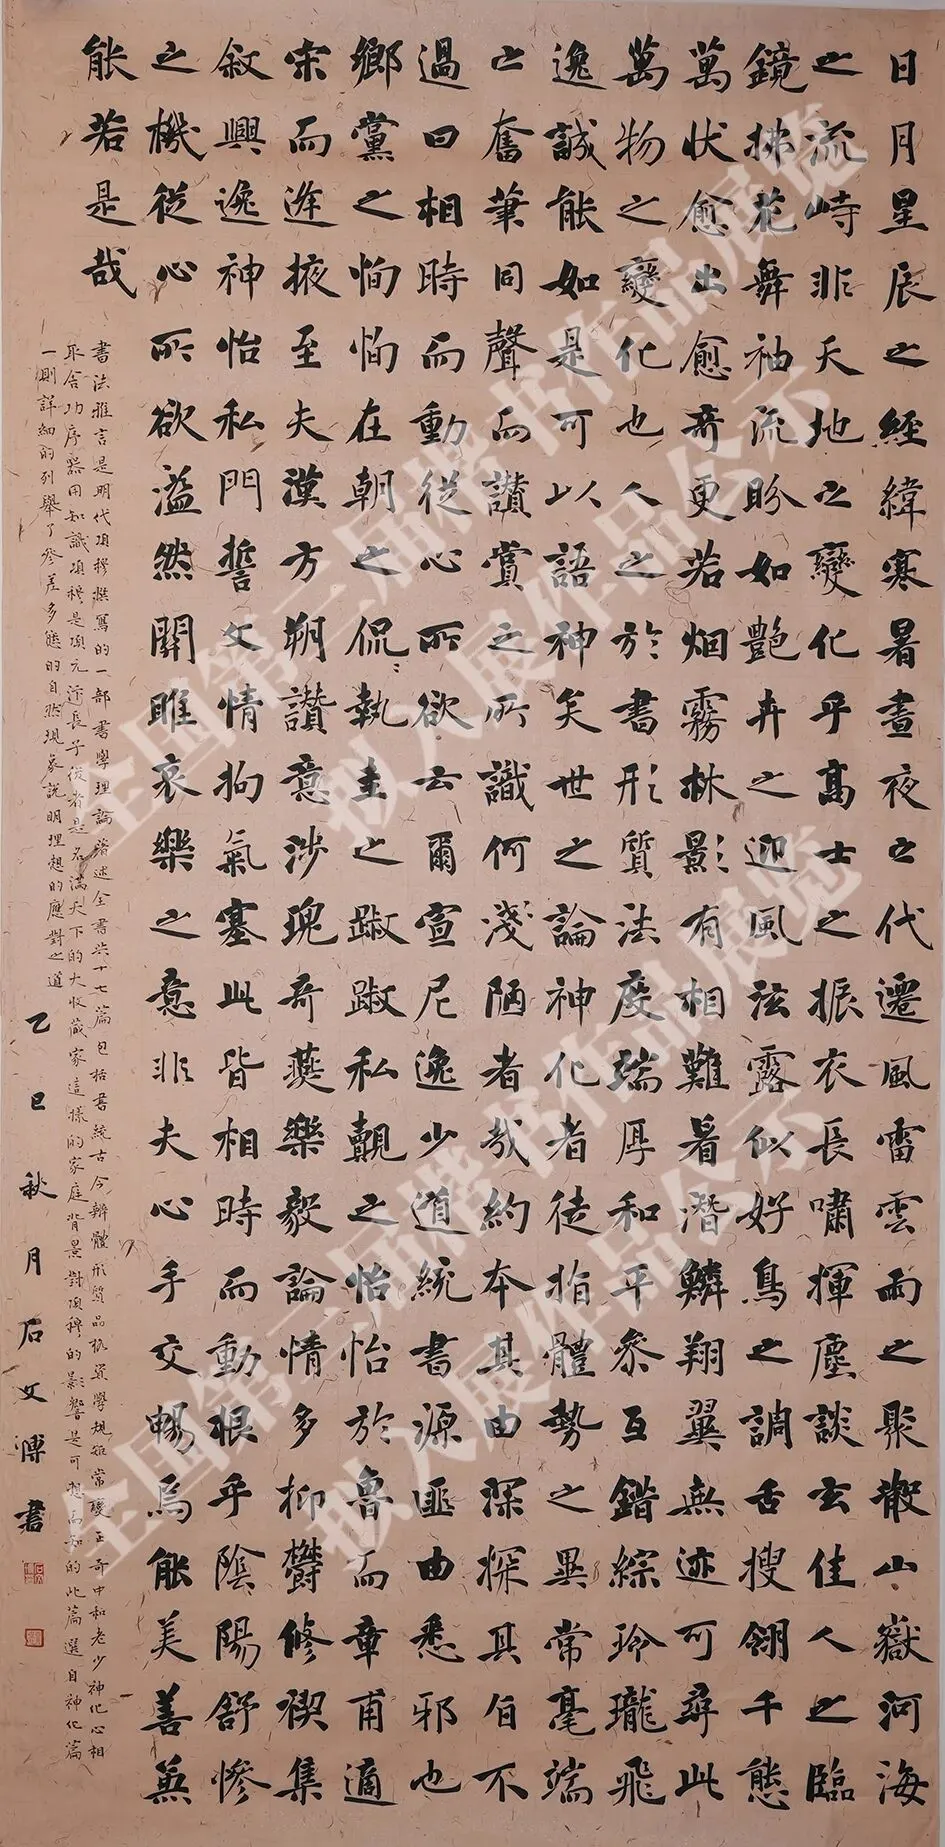 日月星辰之經緯寒暑晝夜之代遷風雷雲雨之聚散山嶽河海
之流峙非天地之變化乎高士之振衣長嘯揮麈談玄佳人之臨
鏡拂花舞袖流盼如艷卉之迎風泫露似好鳥之調舌搜翎千態
萬狀愈出愈奇更若烟霧林影有相難著潛鱗翔翼無迹可尋此
萬物之變化也人之於書形質法度端厚和平參互錯綜玲瓏飛
逸誠能如是可以語神矣世之論神化者徒指體勢之異常毫端
之奮筆同聲而讃賞之所識何淺陋者哉約本其由深探其旨不
過曰相時而動從心所欲云爾宣尼逸少道統書源匪由悉邪也
鄉黨之恂恂在朝之侃〻執圭之踧踧私覿之怡怡於魯而章甫適
宋而逢掖至夫漢方朔讃意涉瑰奇燕樂毅論情多抑欝修禊集
敘興逸神怡私門誓文情拘氣塞此皆相時而動根乎陰陽舒慘
之機從心所欲溢然關雎哀樂之意非夫心手交暢焉能美善兼
能若是哉
書法雅言是明代項穆撰寫的一部書學理論著述全書共十七篇包括書統古今辨體形質品格資學規矩常變正奇中和老少神化心相
取舍功序器用知識項穆是項元汴長子後者是名滿天下的大收藏家這樣的家庭背景對項穆的影響是可想而知的此篇選自神化篇
一則詳細的列舉了參差多態的自然現象説明理想的應對之道
乙巳秋月石文溥書
全国第三届楷书作品展览
拟入展作品公示
全国第三届楷书作品展览
拟入展作品公示